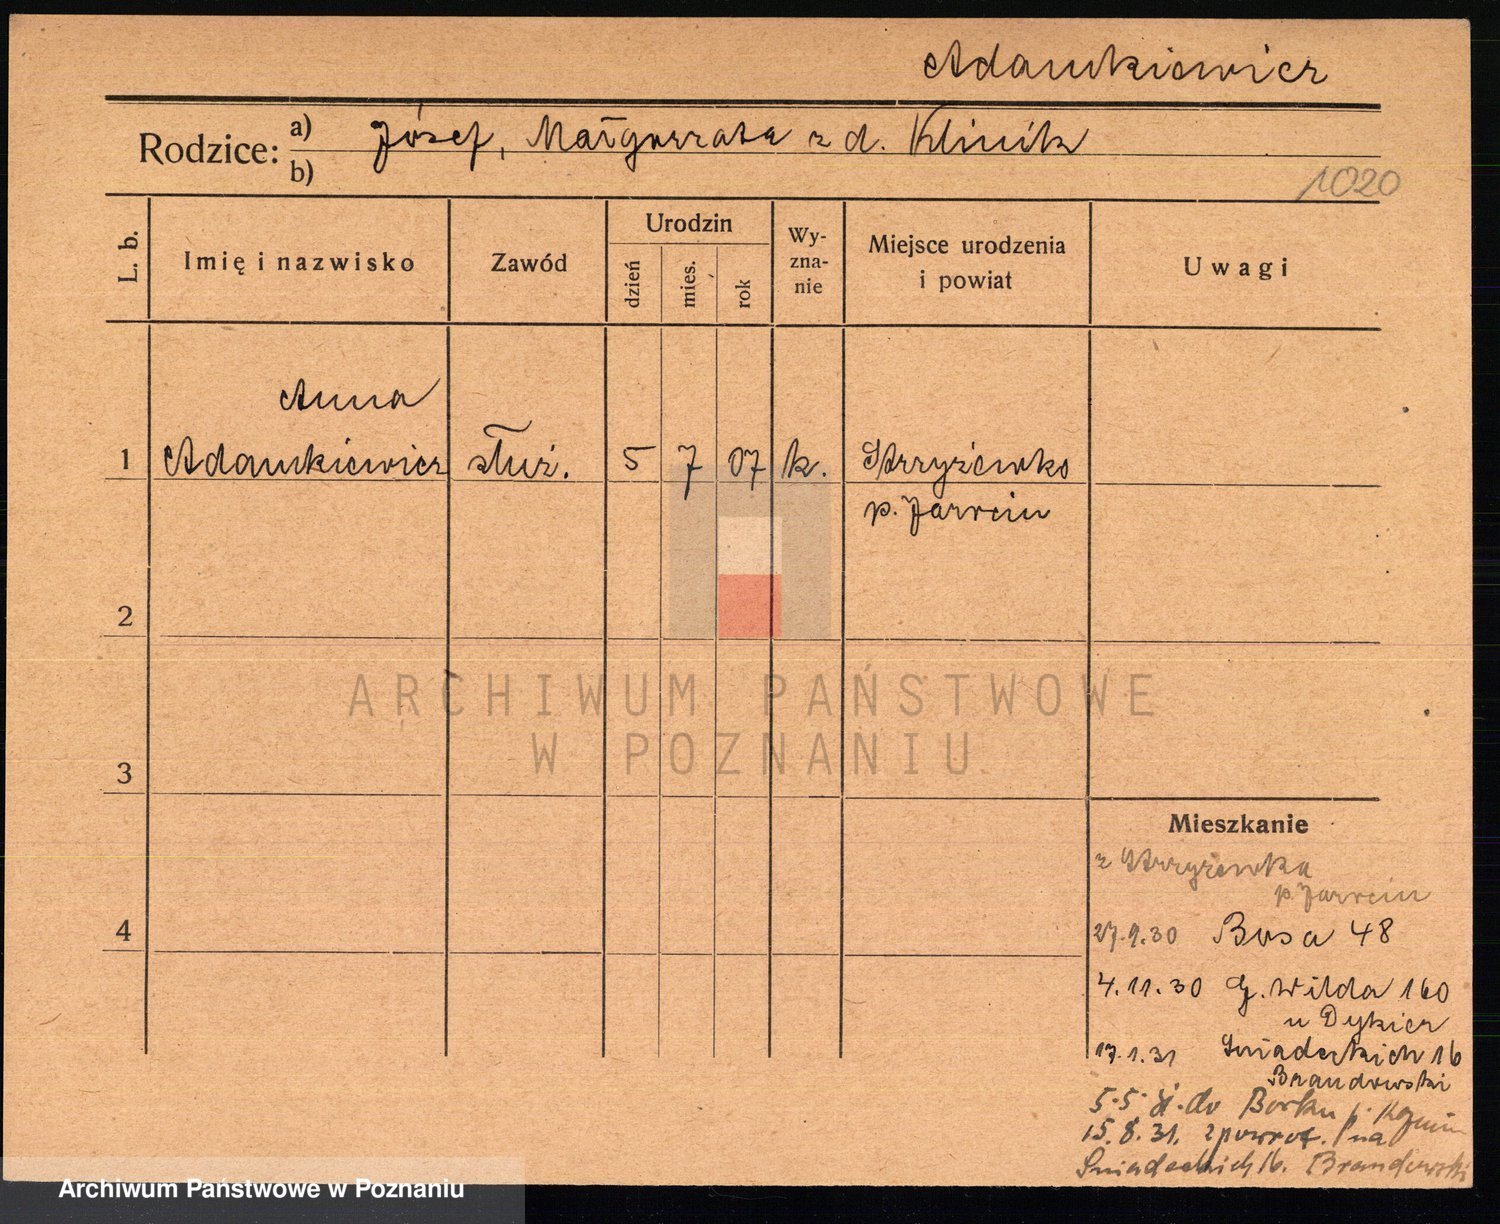 Adamkiewicz
Rodzice: a) Józef, Małgorzata z d. Klinik
b)
1020
L. b.
Imię i nazwisko
Zawód
Urodzin
dzień
mies.
rok
Wy-
zna-
nie
Miejsce urodzenia
i powiat
Uwagi
Anna
1 Adamkiewicz służ. 5 7 07 k. Strzyżewko
p. Jarocin
2
ARCHIWUM PAŃSTWOWE
W POZNANIU
3
Mieszkanie
z Strzyżewka
p. Jarocin
4
27.9.30 Bosa 48
4.11.30 G. Wilda 160
u Dykier
17.1.31 Śniadeckich 16
Brandowski
5.5. do Borku p.
15.8.31. zpowrot. na
Śniadeckich 16. Brandowski
Archiwum Państwowe w Poznaniu